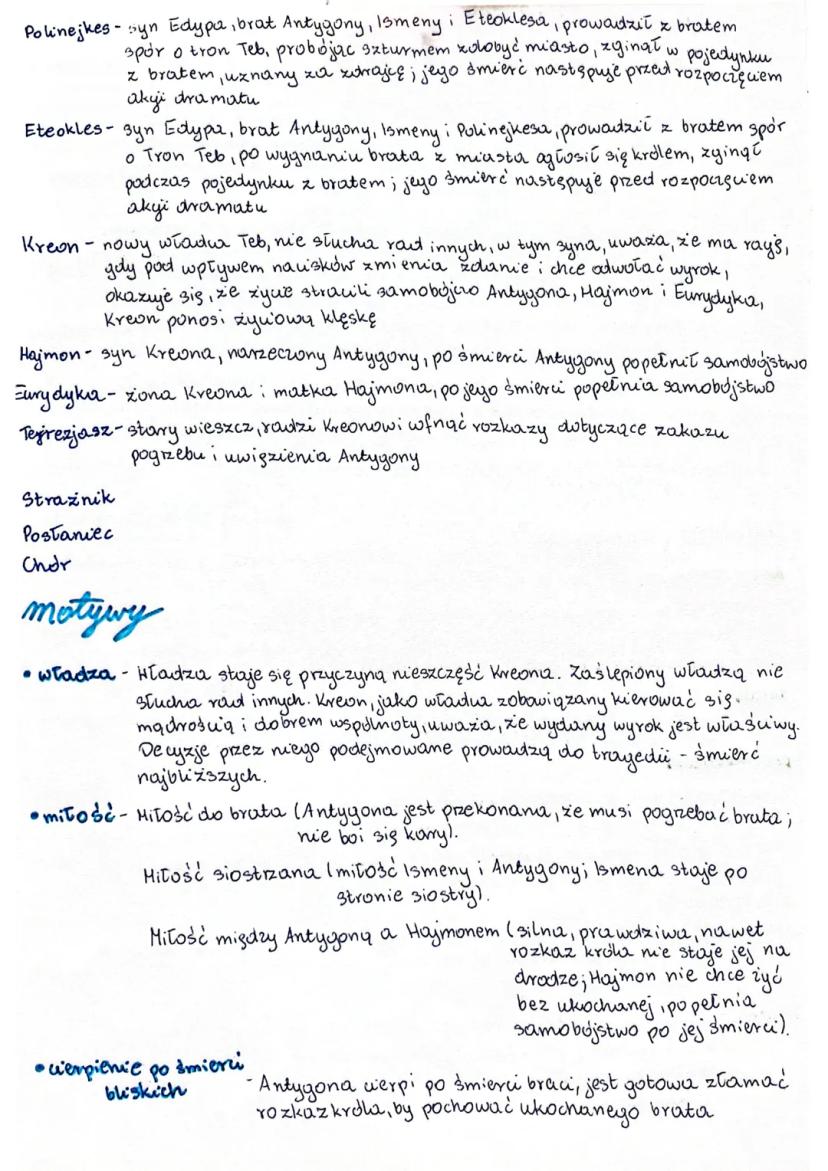 Polinejkes - syn Edypa, brat Antygony, Ismeny i Eteoklesa, prowadził z bratem
spór o tron Teb, probójąc szturmem zdobyć miasto, zginął w pojedynku
z bratem, uznany za zdrajcę; jego śmierć następuje przed rozpoczęciem
akcji dramatu
Eteokles - syn Edypa, brat Antygony, Ismeny i Polinejkesa, prowadził z bratem spór
o Tron Teb, po wygnaniu brata z miasta ogłosił się królem, zginął
podczas pojedynku z bratem; jego śmierć następuje przed rozpoczęciem
akcji dramatu
Kreon - nowy władca Teb, nie słucha rad innych, w tym syna, uważa, że ma rację,
gdy pod wpływem nacisków zmienia zdanie i chce odwołać wyrok,
okazuje się, że życie stracili samobójczo Antygona, Hajmon i Eurydyka,
Kreon ponosi życiową klęskę
Hajmon - syn Kreona, narzeczony Antygony, po śmierci Antygony popełnił samobójstwo
Eurydyka - żona Kreona i matka Hajmona, po jego śmierci popełnia samobójstwo
Tejrezjasz - stary wieszcz, radzi Kreonowi wfnąć rozkazy dotyczące zakazu
pogrzebu i uwięzienia Antygony
Strażnik
Posłaniec
Chór
motywy
• władza - Władza staje się przyczyną nieszczęść Kreona. Zaślepiony władzą nie
słucha rad innych. Kreon, jako władca zobowiązany kierować się
mądrością i dobrem wspólnoty, uważa, że wydany wyrok jest właściwy.
Decyzje przez niego podejmowane prowadzą do tragedii - śmierć
najbliższych.
• miłość - Miłość do brata (Antygona jest przekonana, że musi pogrzebać brata;
nie boi się kary).
Miłość siostrzana (miłość Ismeny i Antygony; Ismena staje po
stronie siostry).
Miłość między Antygoną a Hajmonem (silna, prawdziwa, nawet
rozkaz króla nie staje jej na
drodze; Hajmon nie chce żyć
bez ukochanej, popełnia
samobójstwo po jej śmierci).
• cierpienie po śmierci
bliskich
- Antygona cierpi po śmierci braci, jest gotowa złamać
rozkaz króla, by pochować ukochanego brata